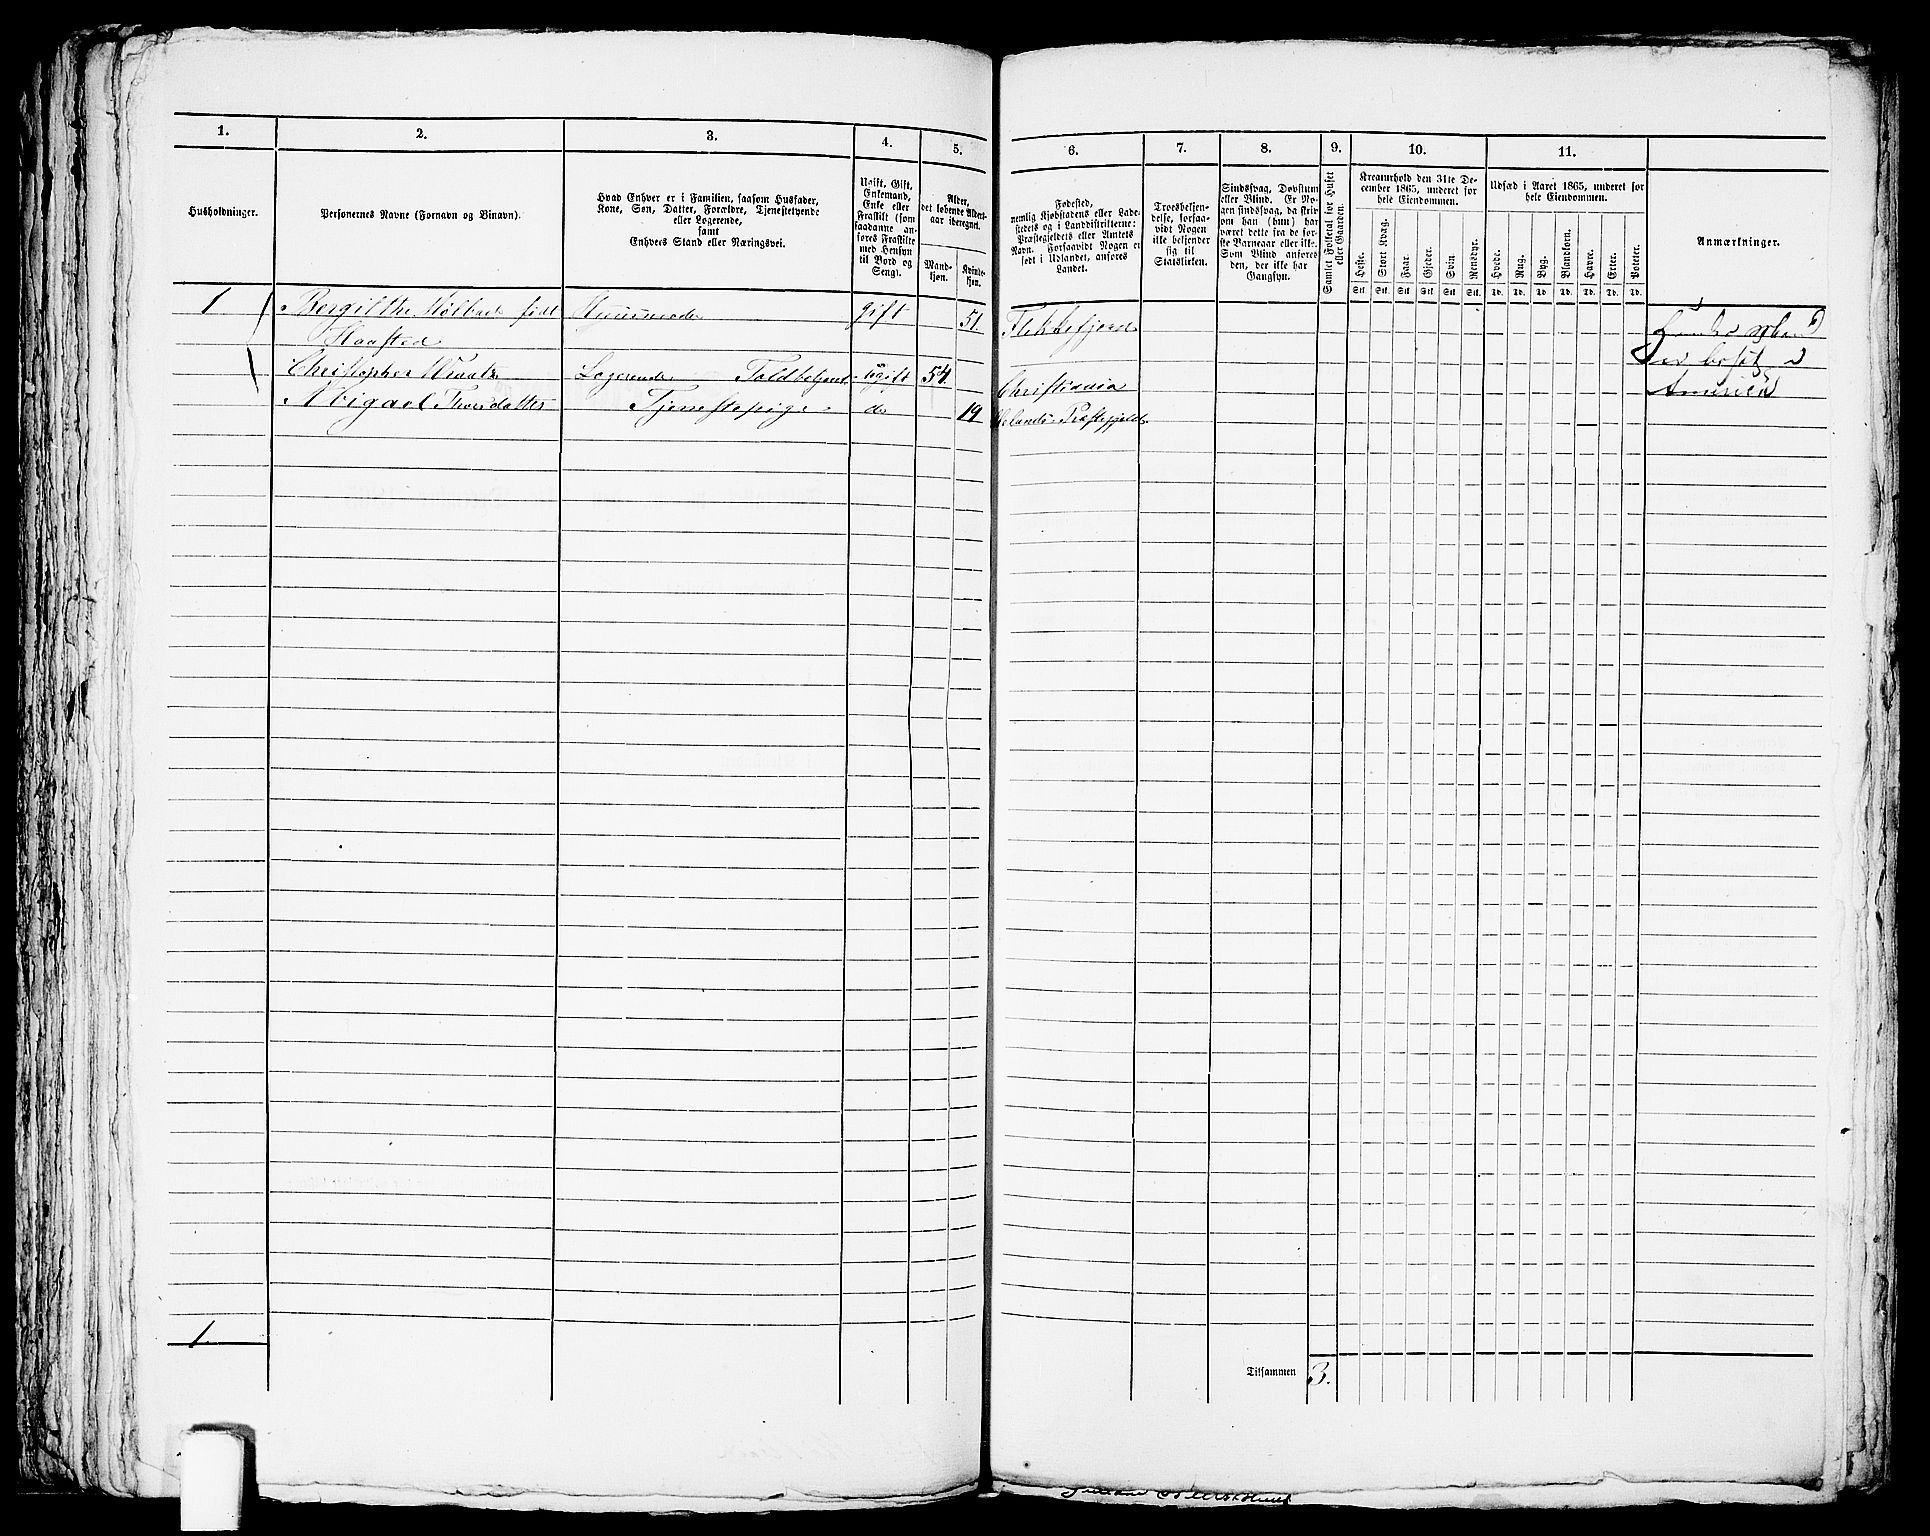 1.
2.
3.
4.
5.
6.
7.
8.
9.
10.
11.
Husholdninger.
Personernes Navne (Fornavn og Binavn).
Hvad Enhver er i Familien, saasom Husfader,
Kone, Søn, Datter, Forældre, Tjenestetyende
eller Logerende,
samt
Enhvers Stand eller Næringsvei.
Ugift, Gift,
Enkemand,
Enke eller
Fraskilt (som
saadanne an-
føres Fraskilte
med Hensyn
til Bord og
Seng).
Alder,
det løbende Alders-
aar iberegnet.
Mand-
kjøn.
Kvinde-
kjøn.
Fødested,
nemlig Kjøbstadens eller Lade-
stedets og i Landdistrikterne:
Præstegjeldets eller Amtets
Navn. Forsaavidt Nogen er
født i Udlandet, anføres
Landet.
Troesbekjen-
delse, forsaa-
vidt Nogen
ikke bekjender
sig til
Statskirken.
Sindssvag, Døvstum
eller Blind. Er No-
gen sindssvag, da skriv
om han (hun) har
været dette fra de før-
ste Barneaar eller ikke.
Som Blind anføres
den, der ikke har
Gangsyn.
Samlet Folketal for Huset
eller Gaarden.
Kreaturhold den 31te De-
cember 1865, underet for
hele Eiendommen.
Heste.
Stort Kvæg.
Faar.
Gjeder.
Svin
Rensdyr.
Stk. Stk. Stk. Stk. Stk. Stk.
Udsæd i Aaret 1865, underet for
hele Eiendommen.
Hvede.
Rug.
Byg.
Blandkorn.
Havre.
Erter.
Poteter.
Td. Td. Td. Td. Td. Td. Td.
Anmærkninger.
1 Bergitthe Holbad født Huusmoder gift 51 Flekkefjord
Haasted
Christopher Logerende Toldbetjent ugift 54 Christiania
Abigael Thorsdatter Tjenestepige do 19 Præstegjeld
er bosat
America
1.
Tilsammen 3.